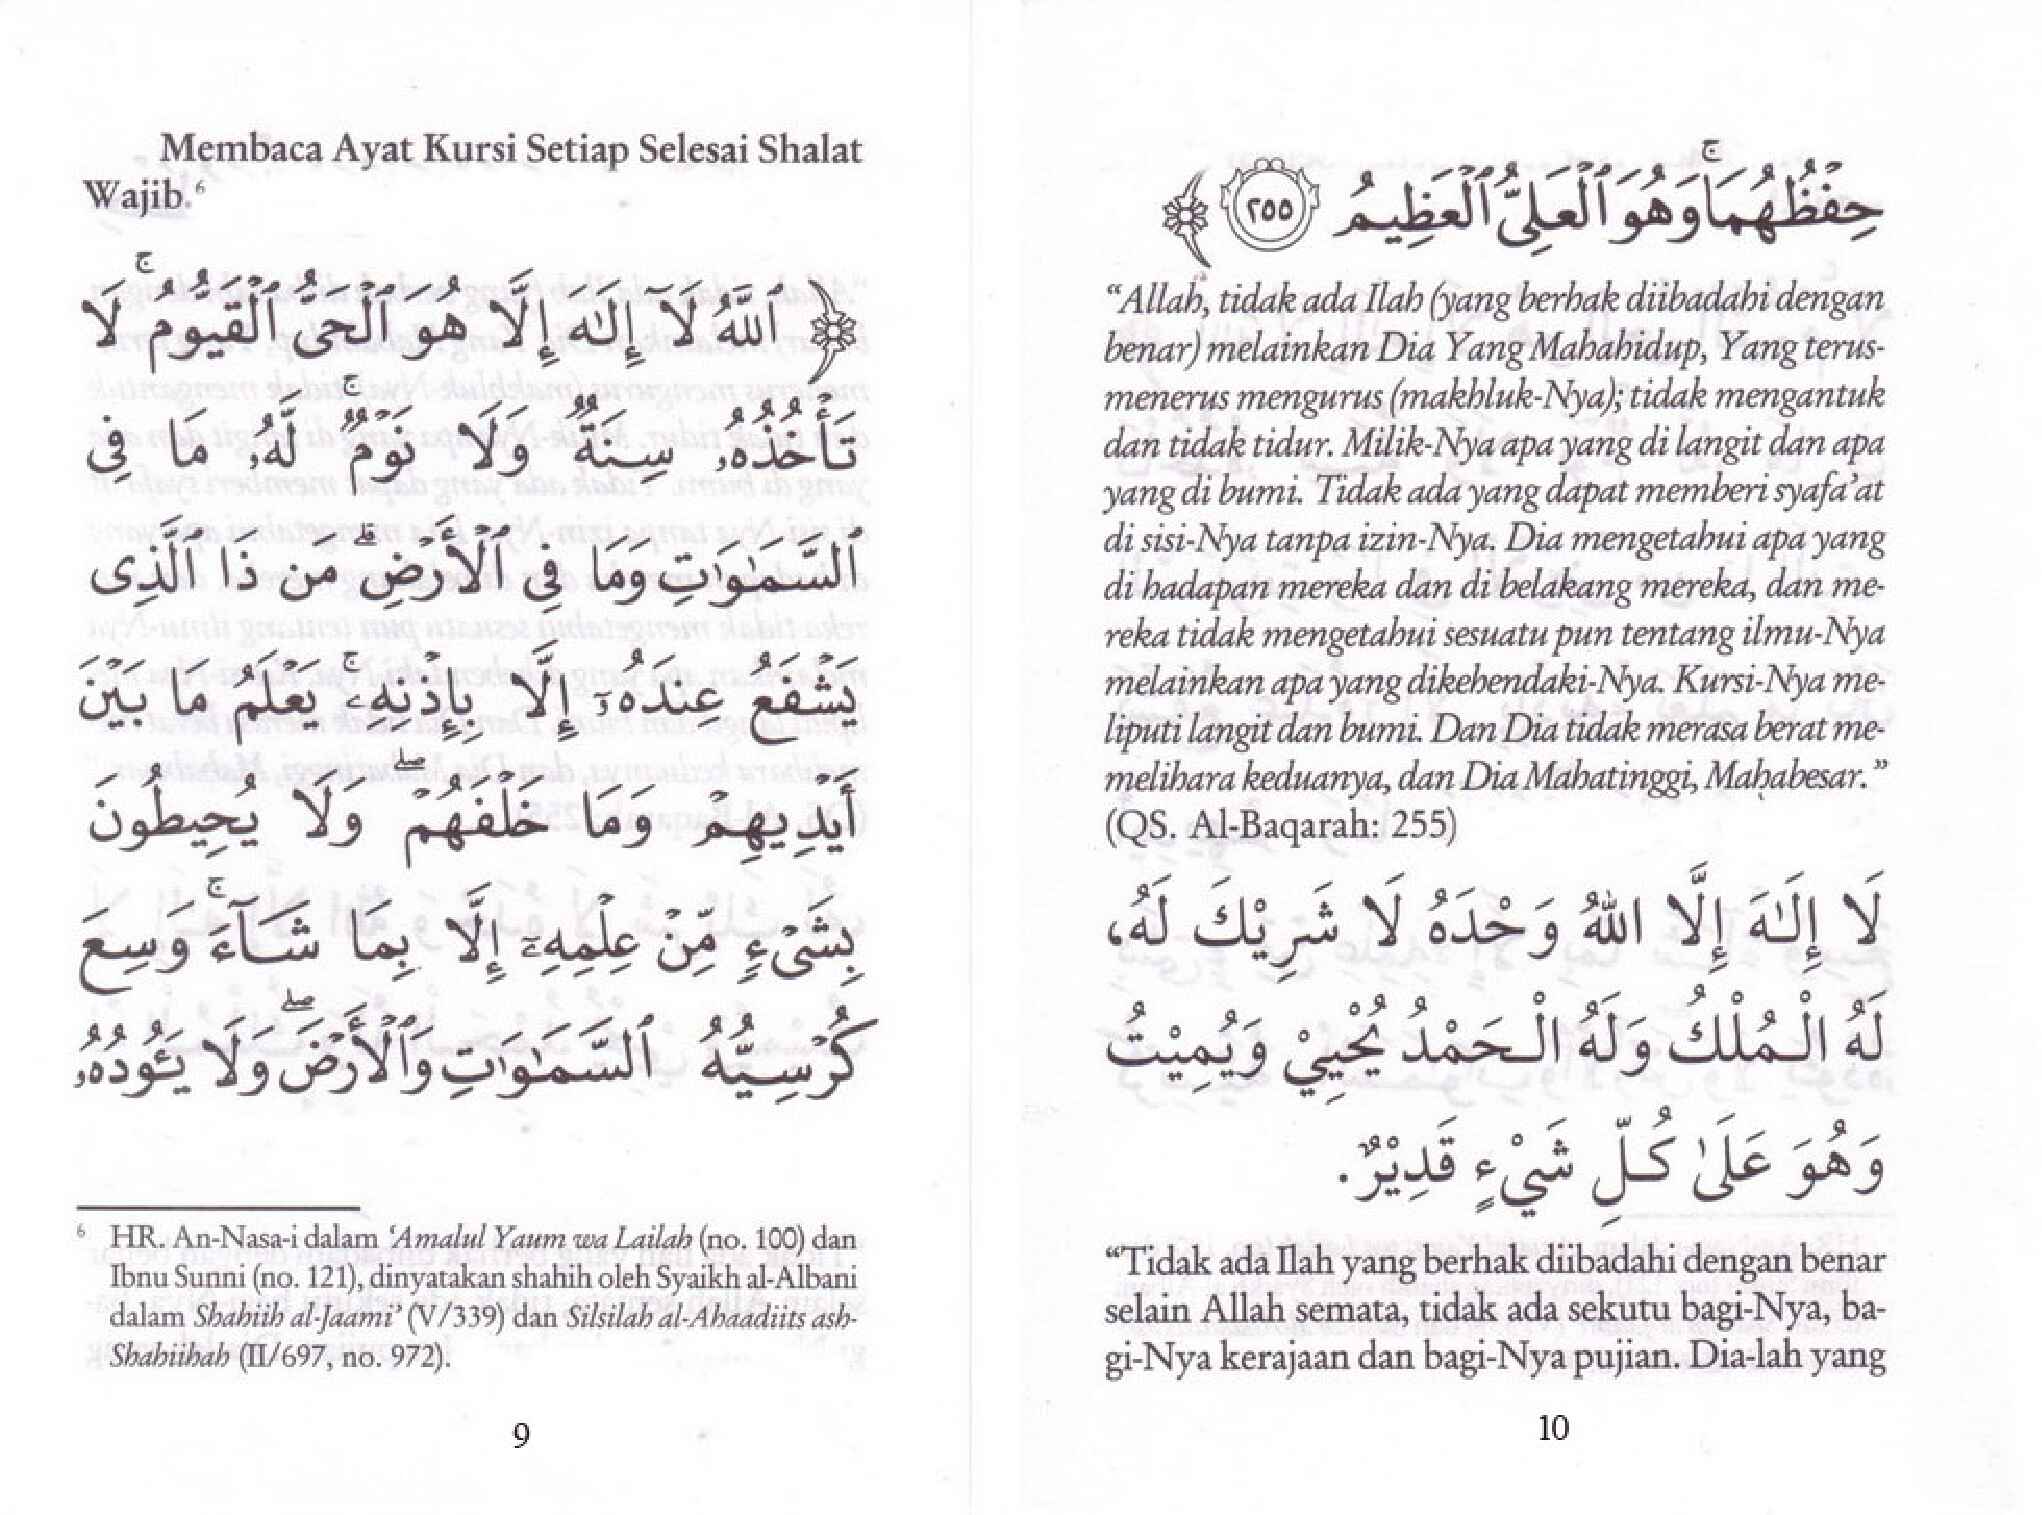 Membaca Ayat Kursi Setiap Selesai Shalat
Wajib.⁶
﴿ ٱللَّهُ لَآ إِلَٰهَ إِلَّا هُوَ ٱلْحَىُّ ٱلْقَيُّومُ ۚ لَا
تَأْخُذُهُۥ سِنَةٌ وَلَا نَوْمٌ ۚ لَّهُۥ مَا فِى
ٱلسَّمَٰوَٰتِ وَمَا فِى ٱلْأَرْضِ ۗ مَن ذَا ٱلَّذِى
يَشْفَعُ عِندَهُۥٓ إِلَّا بِإِذْنِهِۦ ۚ يَعْلَمُ مَا بَيْنَ
أَيْدِيهِمْ وَمَا خَلْفَهُمْ ۖ وَلَا يُحِيطُونَ
بِشَىْءٍ مِّنْ عِلْمِهِۦٓ إِلَّا بِمَا شَآءَ ۚ وَسِعَ
كُرْسِيُّهُ ٱلسَّمَٰوَٰتِ وَٱلْأَرْضَ ۖ وَلَا يَـُٔودُهُۥ
⁶ HR. An-Nasa-i dalam ‘Amalul Yaum wa Lailah (no. 100) dan
Ibnu Sunni (no. 121), dinyatakan shahih oleh Syaikh al-Albani
dalam Shahiih al-Jaami’ (V/339) dan Silsilah al-Ahaadiits ash-
Shahiihah (II/697, no. 972).
9
حِفْظُهُمَا ۚ وَهُوَ ٱلْعَلِىُّ ٱلْعَظِيمُ ٢٥٥ ﴾
“Allah, tidak ada Ilah (yang berhak diibadahi dengan
benar) melainkan Dia Yang Mahahidup, Yang terus-
menerus mengurus (makhluk-Nya); tidak mengantuk
dan tidak tidur. Milik-Nya apa yang di langit dan apa
yang di bumi. Tidak ada yang dapat memberi syafa’at
di sisi-Nya tanpa izin-Nya. Dia mengetahui apa yang
di hadapan mereka dan di belakang mereka, dan me-
reka tidak mengetahui sesuatu pun tentang ilmu-Nya
melainkan apa yang dikehendaki-Nya. Kursi-Nya me-
liputi langit dan bumi. Dan Dia tidak merasa berat me-
melihara keduanya, dan Dia Mahatinggi, Mahabesar.”
(QS. Al-Baqarah: 255)
لَا إِلَٰهَ إِلَّا اللهُ وَحْدَهُ لَا شَرِيْكَ لَهُ،
لَهُ الْمُلْكُ وَلَهُ الْحَمْدُ يُحْيِيْ وَيُمِيْتُ
وَهُوَ عَلَىٰ كُلِّ شَيْءٍ قَدِيْرٌ.
“Tidak ada Ilah yang berhak diibadahi dengan benar
selain Allah semata, tidak ada sekutu bagi-Nya, ba-
gi-Nya kerajaan dan bagi-Nya pujian. Dia-lah yang
10